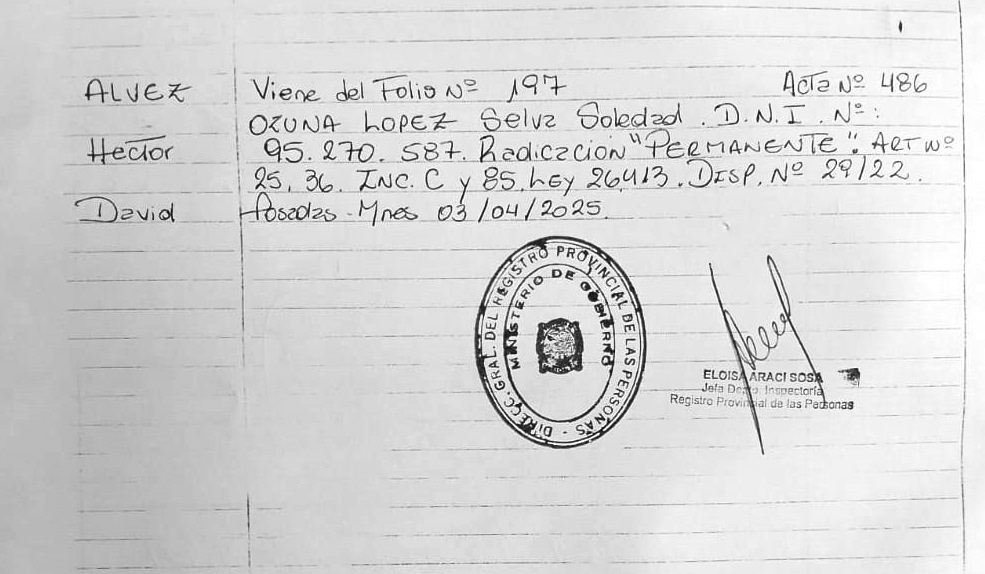 ALVEZ Viene del Folio Nº 197 Acta Nº 486
OZUNA LOPEZ Selva Soledad. D.N.I. Nº:
Hector 95.270.587. Radicacion "PERMANENTE". ART Nº
25, 36. INC. C y 85. Ley 26413. DISP. Nº 29/22.
David Posadas - Mnes 03/04/2025.
DIRECC. GRAL. DEL REGISTRO PROVINCIAL DE LAS PERSONAS -
MINISTERIO DE GOBIERNO
ELOISA ARACI SOSA
Jefa Depto. Inspectoría
Registro Provincial de las Personas